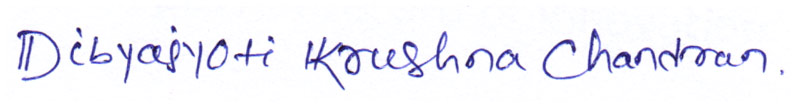 Dibyajyoti Krushna Chandran.